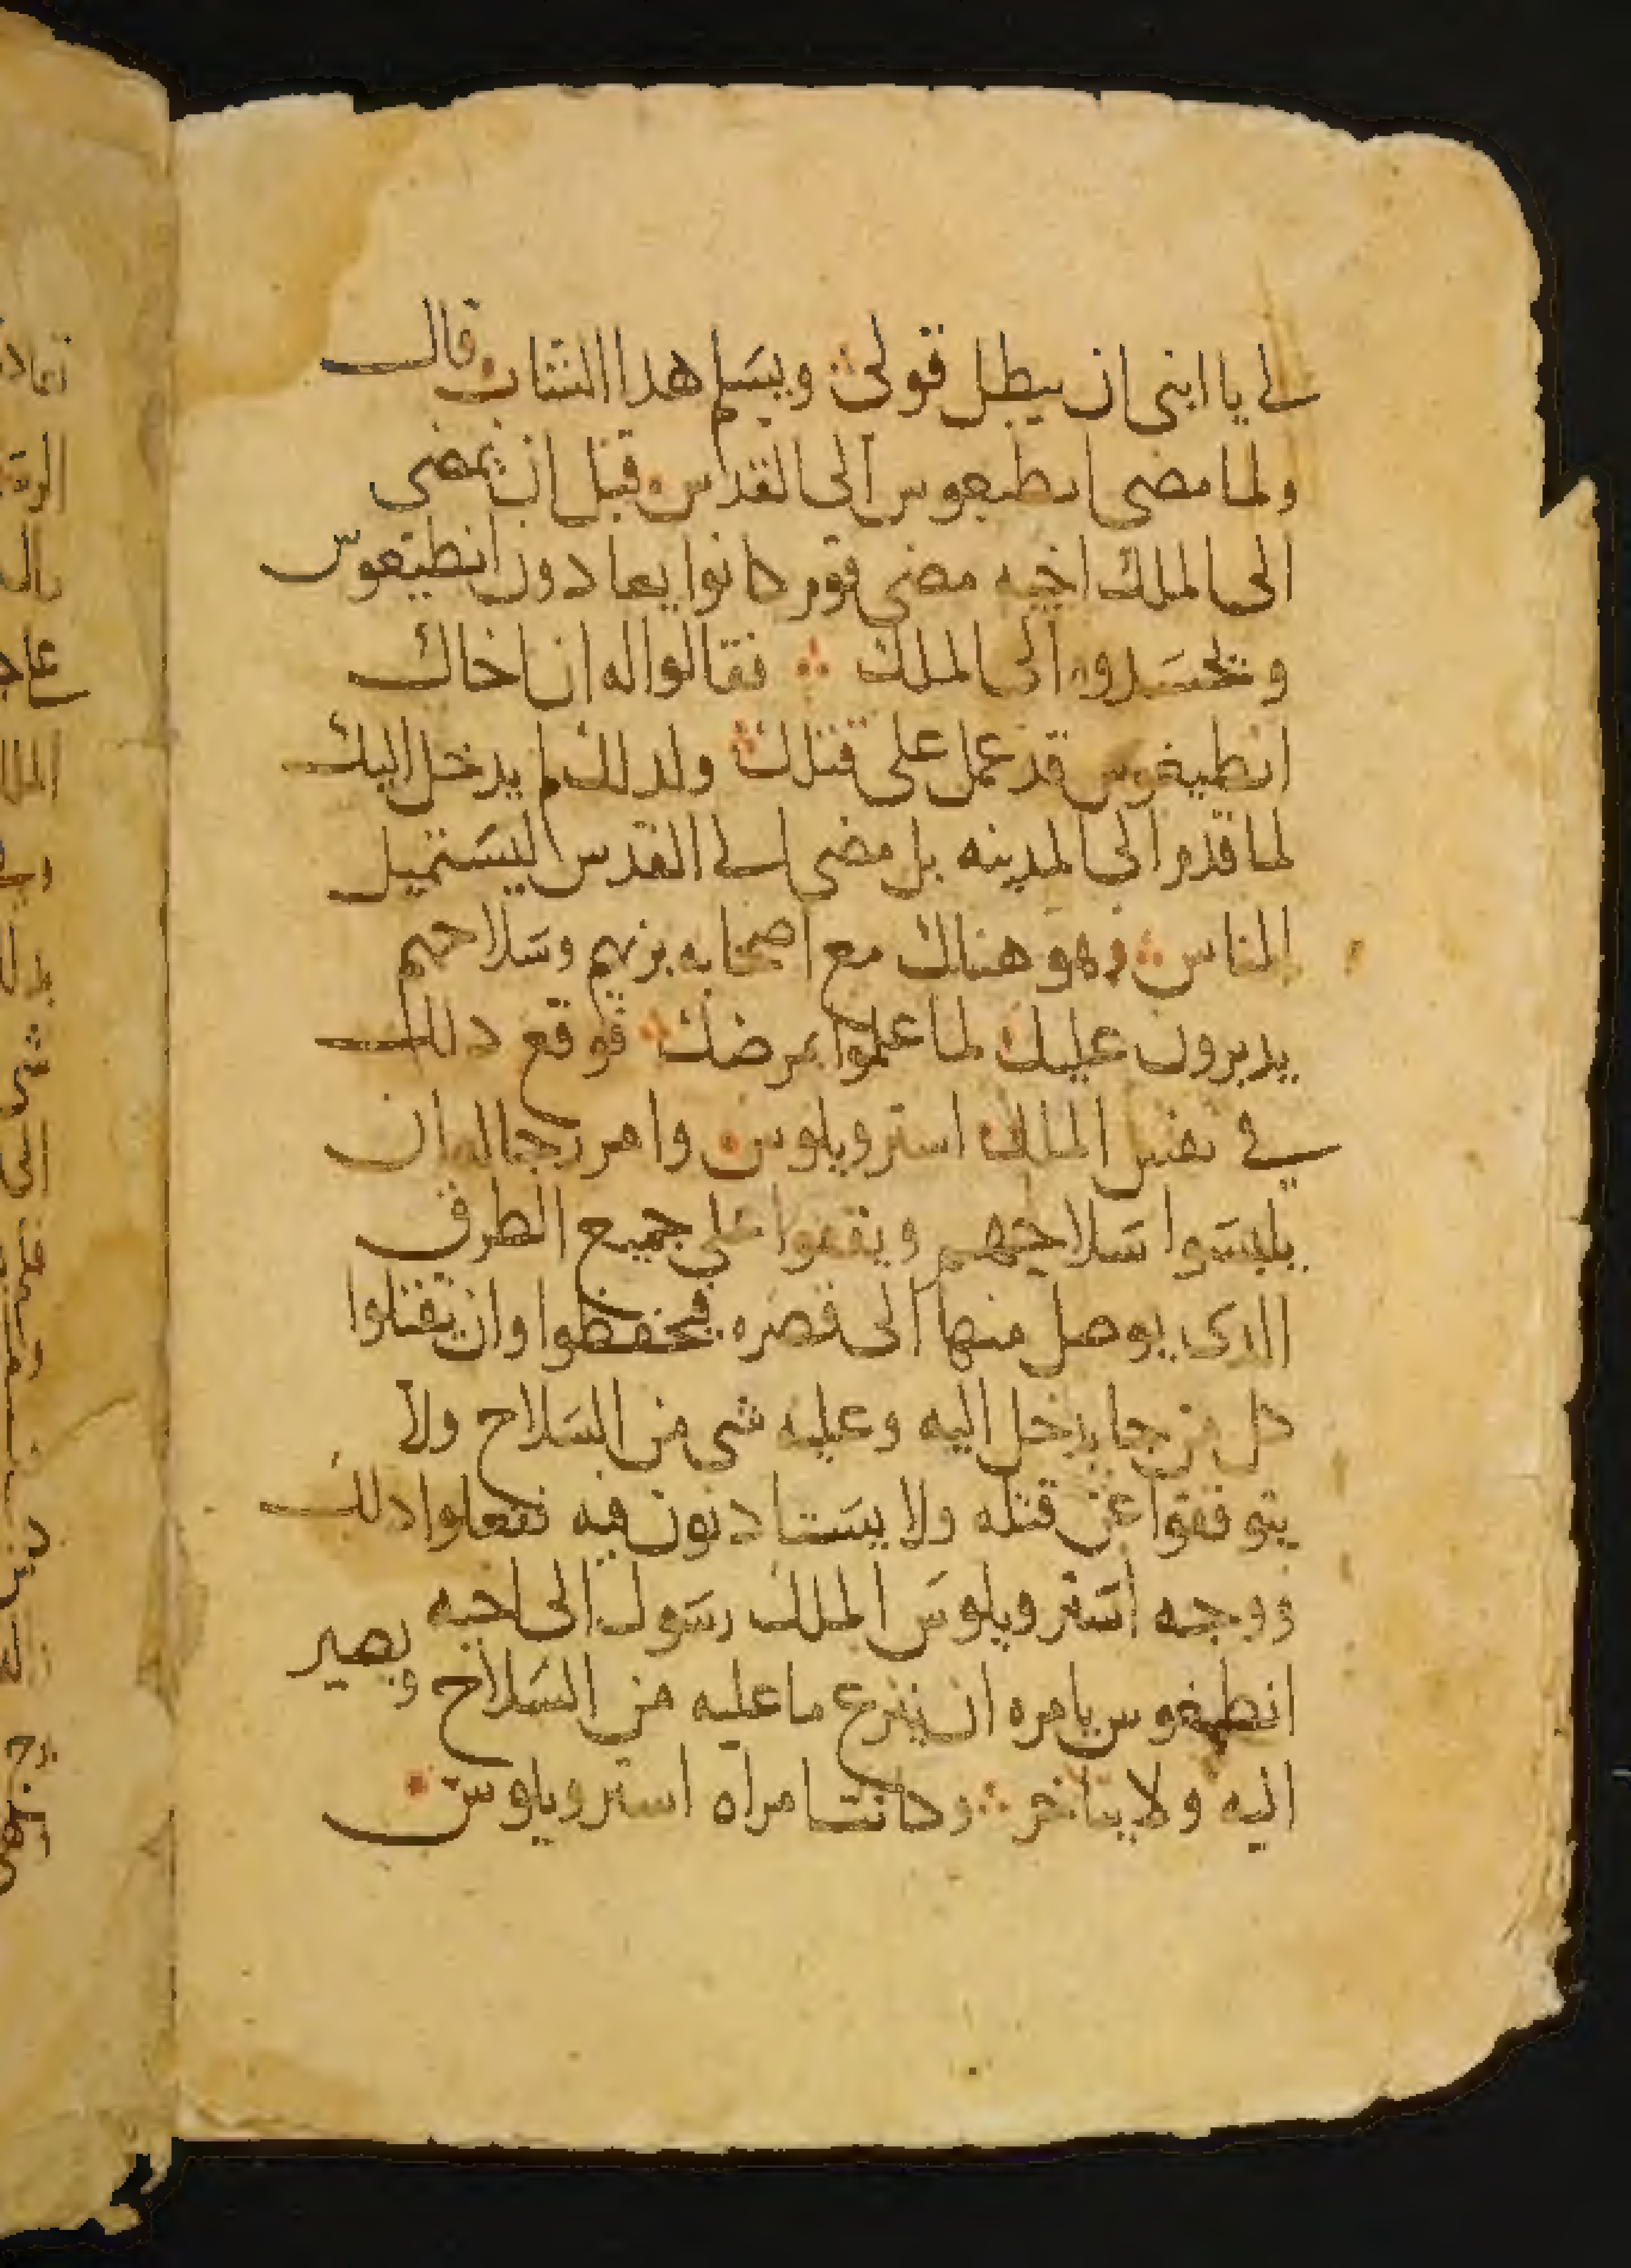 لي يا ابني ان يبطل قولي ويسلم هدا الشاب قال
ولما مضى انطيغوس الى القدس قبل ان يمضي
الى الملك اخيه مضى قوم كانوا يعادون انطيغوس
ويحسدوه الى الملك فقالوا له ان اخاك
انطيغوس قد عمل على قتلك ولدلك لم يدخل اليك
لما قدم الى المدينه بل مضى الي القدس ليستميل
الناس وهو هناك مع اصحابه بزيهم وسلاحهم
يدبرون عليك لما علموا بمرضك فوقع دلك
في نفس الملك استروبلوس وامر رجاله ان
يلبسوا سلاحهم ويقفوا على جميع الطرق
الدي يوصل منها الى قصره فيحفظوا وان يقتلوا
كل من جا يدخل اليه وعليه شي من السلاح ولا
يتوقفوا عن قتله ولا يستادنون فيه ففعلوا دلك
ووجه استروبلوس الملك رسول الى اخيه
انطيغوس يامره ان ينزع ما عليه من السلاح ويصير
اليه ولا يتاخر وكانت امراه استروبلوس